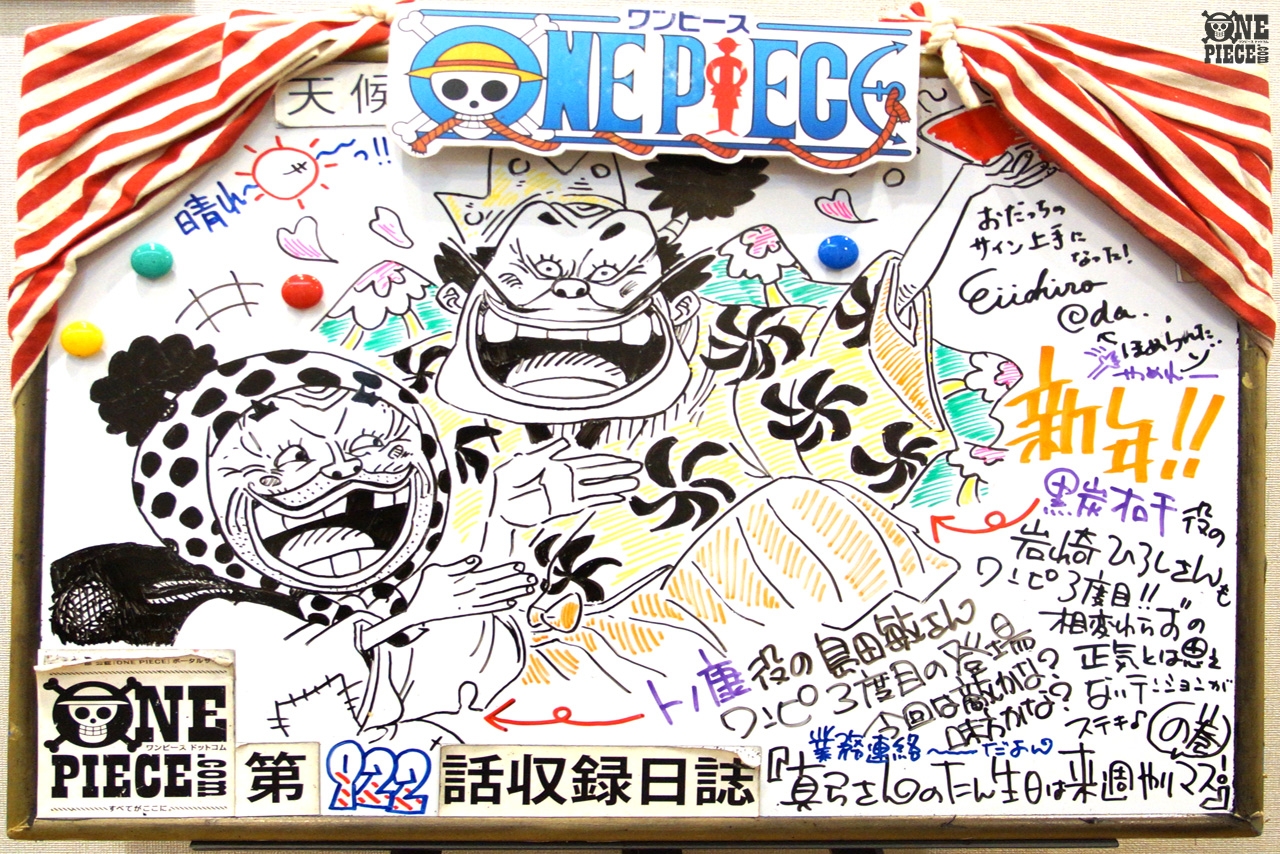 ワンピース
ONE PIECE
ONE
PIECE.com
ワンピース ドットコム
天候
晴れ〜っ!!
おだっちの
サイン上手に
なった!
Eiichiro
@da..
ほめられた
やめれー
新年!!
黒炭オロチ役の
岩崎ひろしさんも
ワンピ3度目!!
相変わらずの
正気とは思え
ないテンションが
ステキ♪
の巻
トノ康役の島田敏さん
ワンピ3度目の登場
今回は敵かな?
味方かな?
業務連絡〜だよん
『真弓さんのたん生日は来週やりマス!』
ONE
ワンピース ドットコム
PIECE.com
すべてがここに。
第922話収録日誌